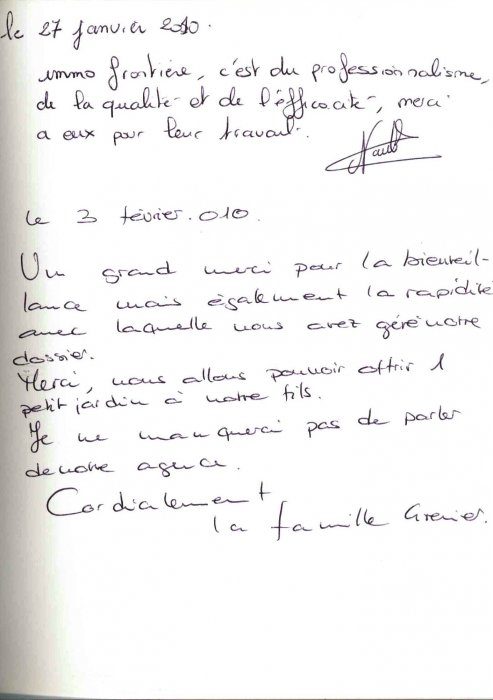 le 27 janvier 2010.
immo frontière, c'est du professionnalisme,
de la qualité et de l'efficacité, merci
a eux pour leur travail.
le 3 février.010.
Un grand merci pour la bienveil-
lance mais également la rapidité
avec laquelle vous avez géré notre
dossier.
Merci, nous allons pouvoir offrir 1
petit jardin à notre fils.
Je ne manquerai pas de parler
de votre agence.
Cordialement
la famille Grenier.